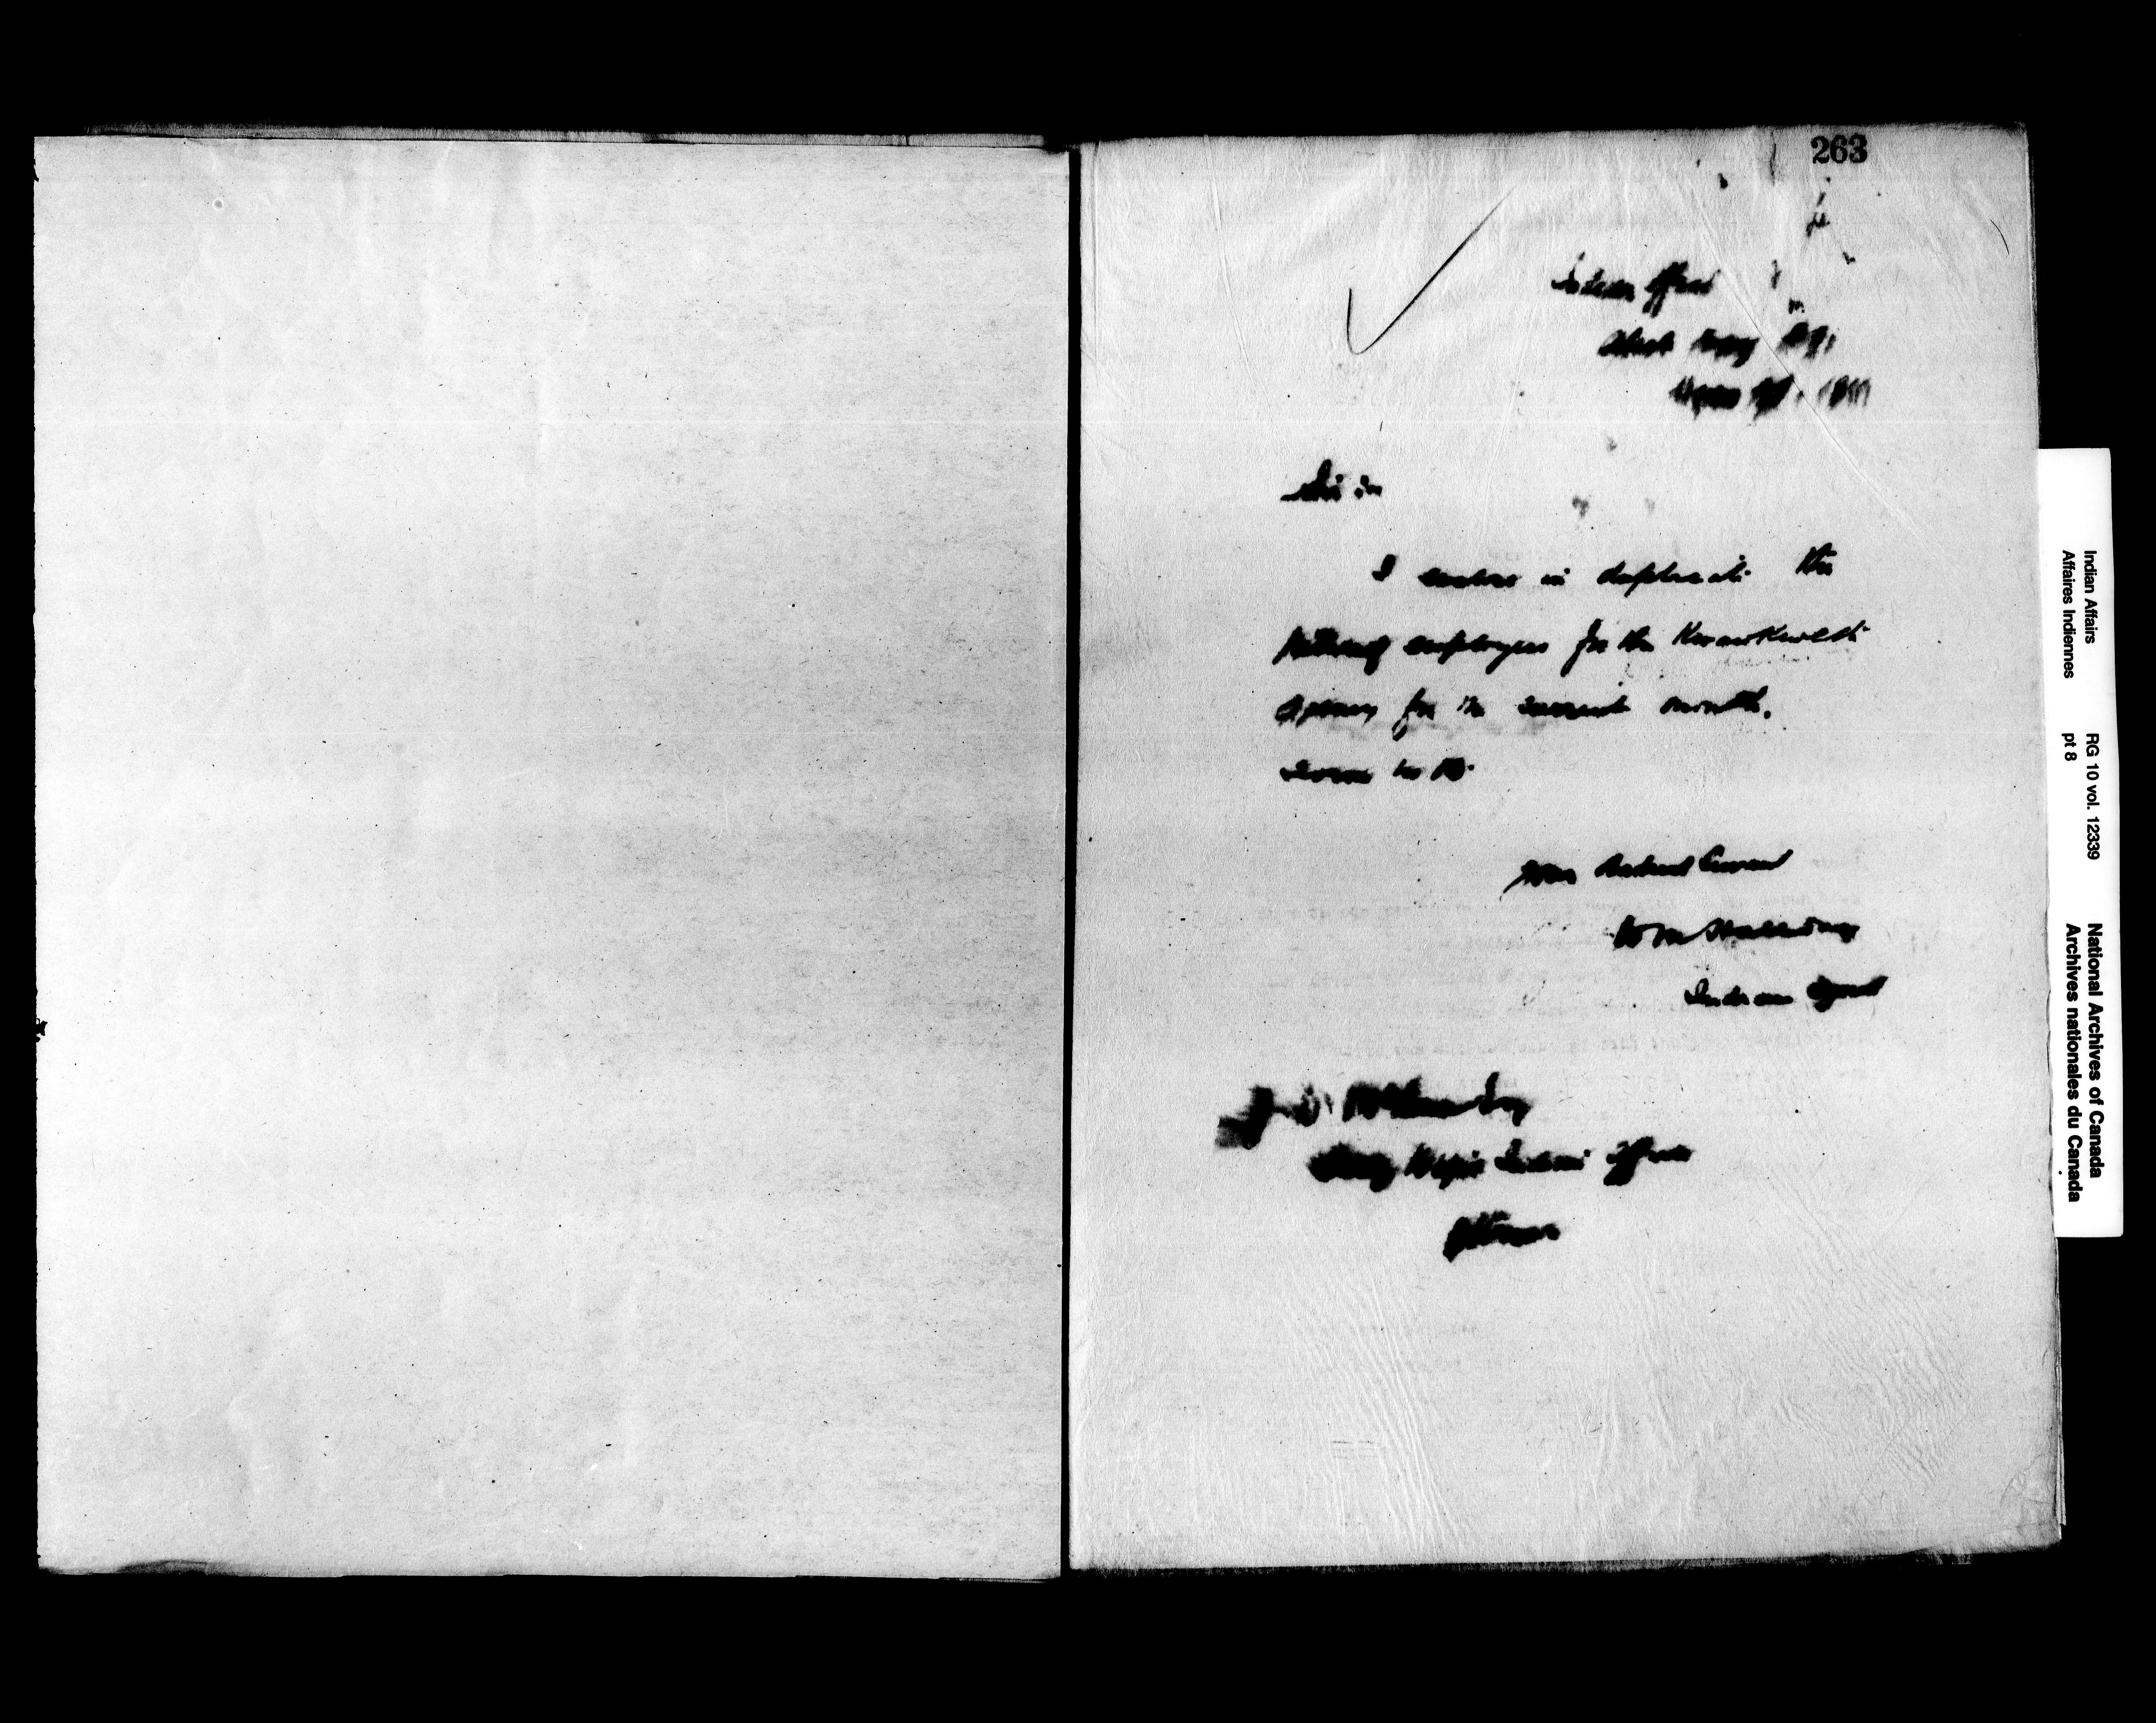 263
Indian Office
Alert Bay B.C.
1911
Sir
I enclose in duplicate the
employees for the Kwawkewlth
Agency for the current month.
Your Obedient Servant
Wm Halliday
Indian Agent
J. D. McLean Esq
Secy Dept Indian Affairs
Ottawa
Indian Affairs RG 10 vol. 12339 National Archives of Canada
Affaires Indiennes pt 8 Archives nationales du Canada